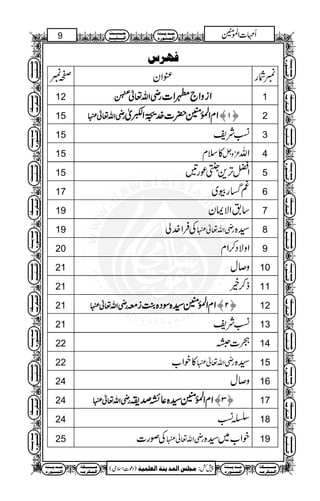 امہات المؤمنین 9
فہرس
نمبر شمار عنوان صفحہ نمبر
1 ازواج مطہرات رضی اللہ تعالیٰ عنہن 12
2 ﴿۱﴾ ام المؤمنین حضرت خدیجۃ الکبریٰ رضی اللہ تعالیٰ عنہا 15
3 نسب شریف 15
4 اللہ عزوجل کا سلام 15
5 افضل ترین جنتی عورتیں 15
6 غم گسار بیوی 17
7 سابق الایمان 19
8 سیدہ رضی اللہ تعالیٰ عنہا کی فراخدلی 19
9 اولاد کرام 20
10 وصال 21
11 ذکر خیر 21
12 ﴿۲﴾ ام المؤمنین سیدہ سودہ بنت زمعہ رضی اللہ تعالیٰ عنہا 21
13 نسب شریف 21
14 ہجرت حبشہ 22
15 سیدہ رضی اللہ تعالیٰ عنہا کا خواب 22
16 وصال 24
17 ﴿۳﴾ ام المؤمنین سیدہ عائشہ صدیقہ رضی اللہ تعالیٰ عنہا 24
18 سلسلہ نسب 24
19 خواب میں سیدہ رضی اللہ تعالیٰ عنہا کی صورت 25
پیش کش: مجلس المدینۃ العلمیۃ (دعوت اسلامی)
www.dawateislami